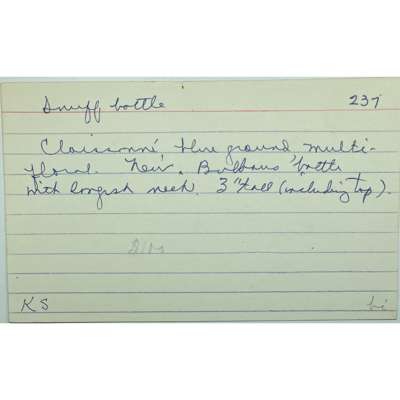 Snuff bottle 237
Cloissonné blue ground multi-
floral. New. Bulbous bottle
with longish neck 3" tall (including top).
KS bi